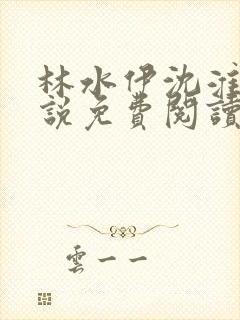 林水伊沈淮
說免費閱讀
雲一一